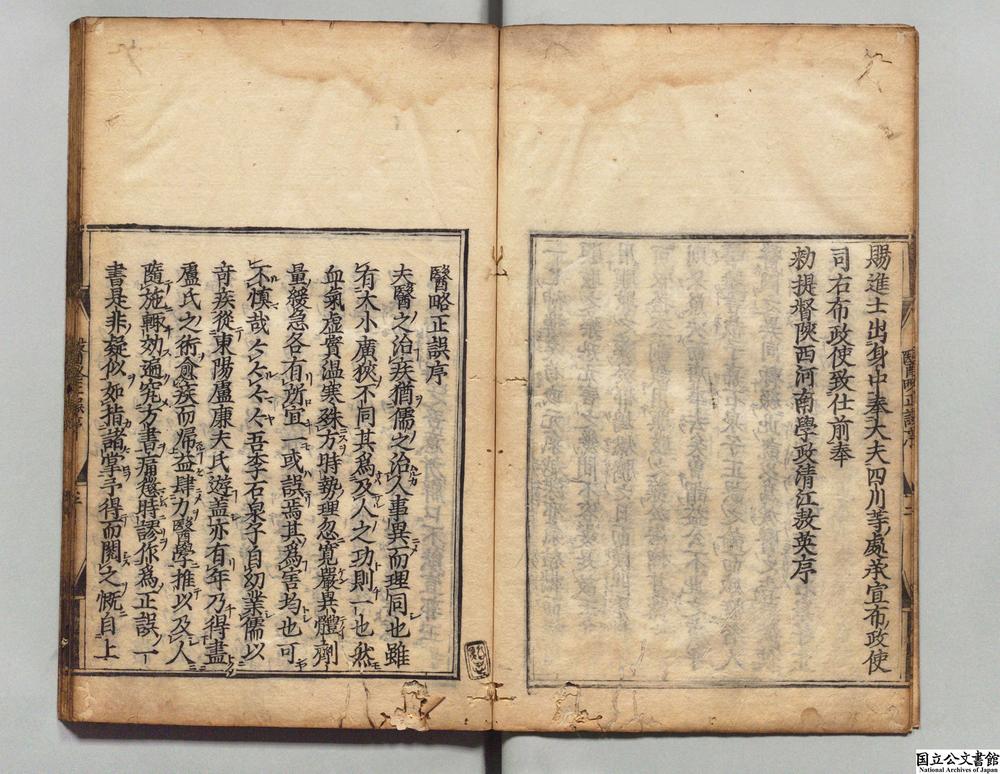 賜進士出身中奉大夫四川等處承宣布政使
司右布政使致仕前奉
勑提督陝西河南學政清江敖英序
醫略正誤序
夫醫之治疾猶儒之治人事異而理同也雖
有大小廣狹不同其為及人之功則一也然
血氣虛實溫寒殊方時勢理忽寬嚴異體劑
量緩急各有所宜一或誤焉其為害均也可
不慎哉〻〻〻〻吾李石泉子自幼業儒以
奇疾從東陽盧康夫氏遊盖亦有年乃得盡
盧氏之術愈疾而歸益肆力醫學推以及人
隨施輙効廼究方書痛懲時謬作為正誤一
書是非疑似如指諸掌予得而閱之慨自上
国立公文書館
National Archives of Japan